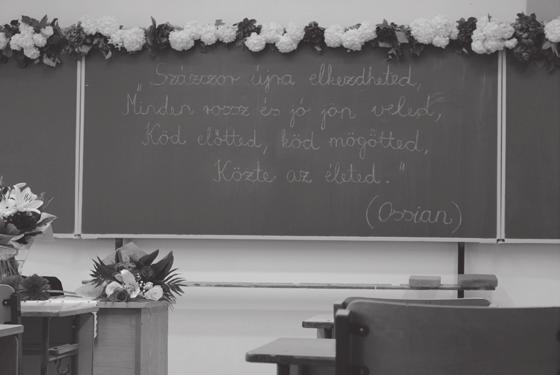 Százszor újra elkezdheted,
"Minden rossz és jó jön veled,
Köd előtted, köd mögötted,
Közte az életed."
(Ossian)